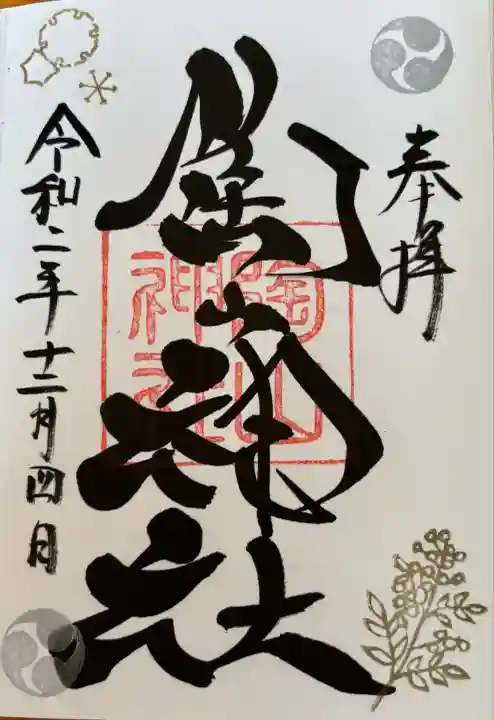 奉拝
陶山神社
陶山神社
令和二年十二月四日